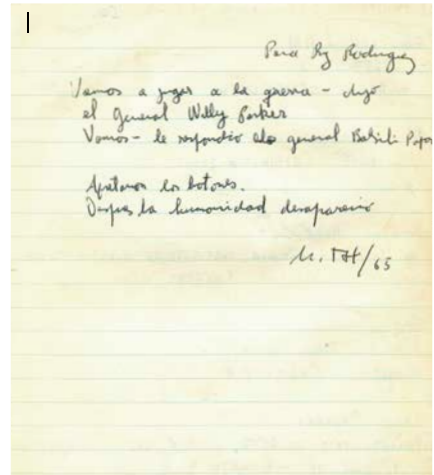 Para Ry Rodriguez
Vamos a jugar a la guerra - dijo
el General Willy Parker
Vamos - le respondió el general
Apretaron los botones.
Despues la humanidad desapareció
/65